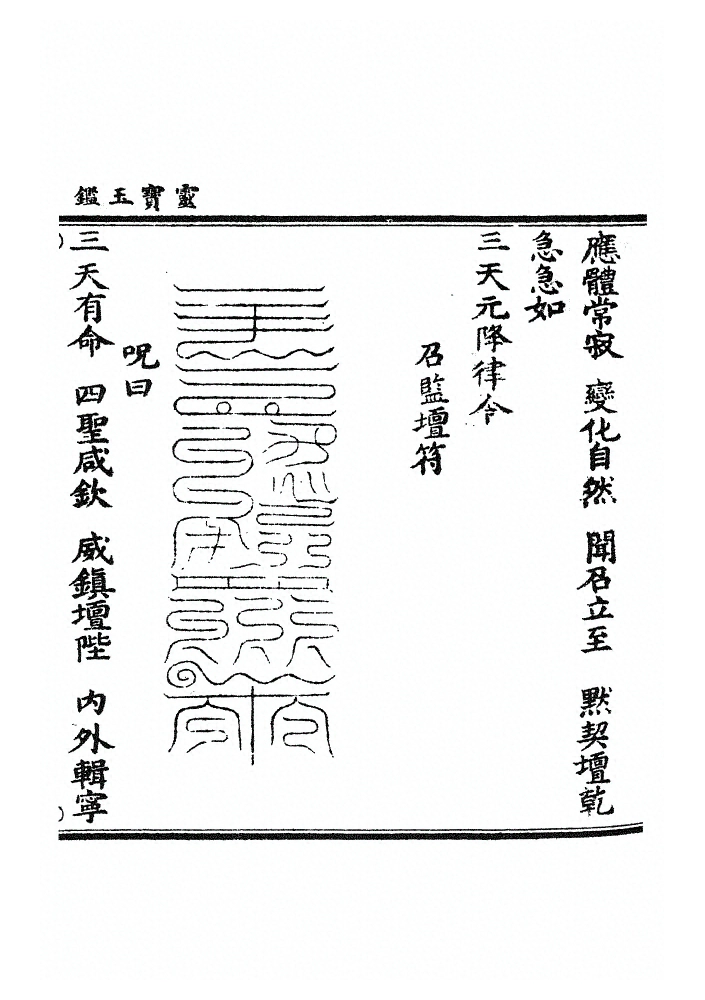 靈寶玉鑑
應體常寂　變化自然　聞召立至　默契壇乾
急急如
三天元降律令
召監壇符
呪曰
三天有命　四聖咸欽　威鎮壇陛　內外輯寧